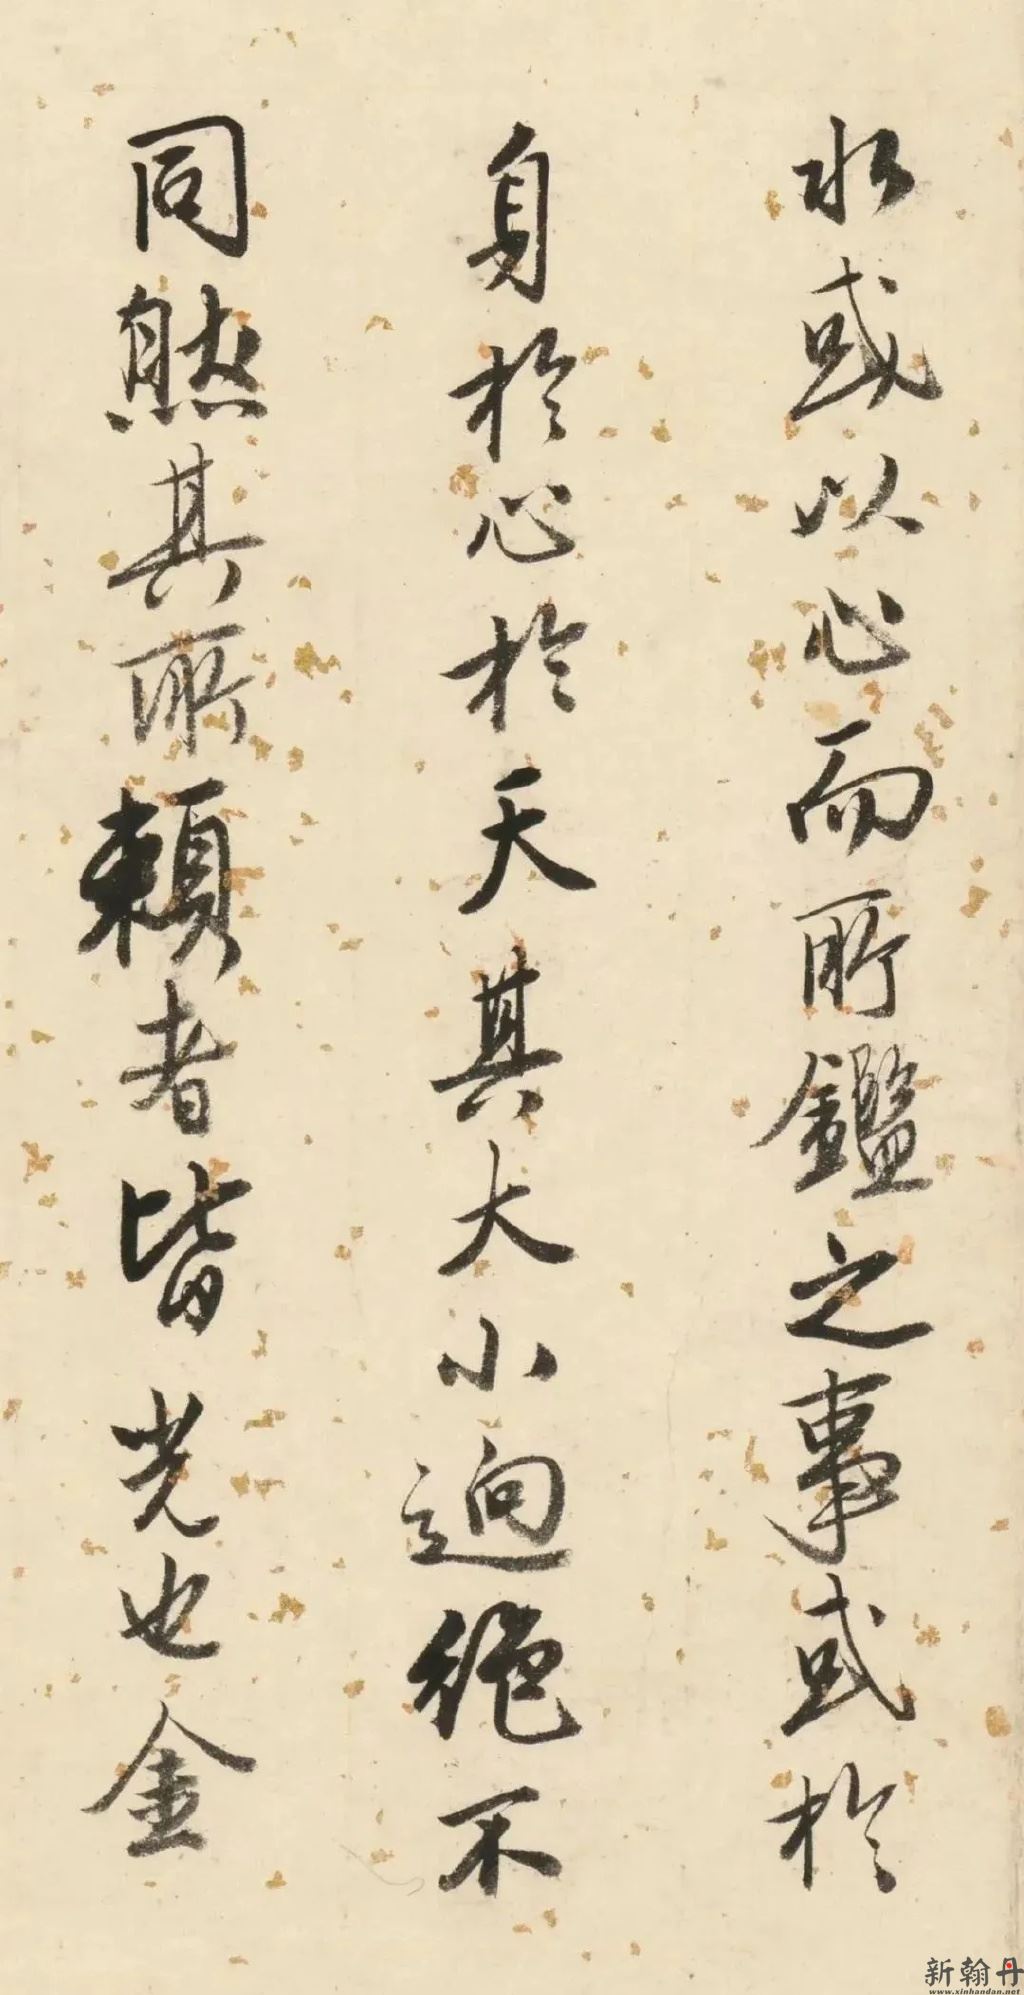 水或以心而所鑑之事或於
身於心於天其大小迥絶不
同然其所賴者皆光也金
新翰丹
www.xinhandan.net